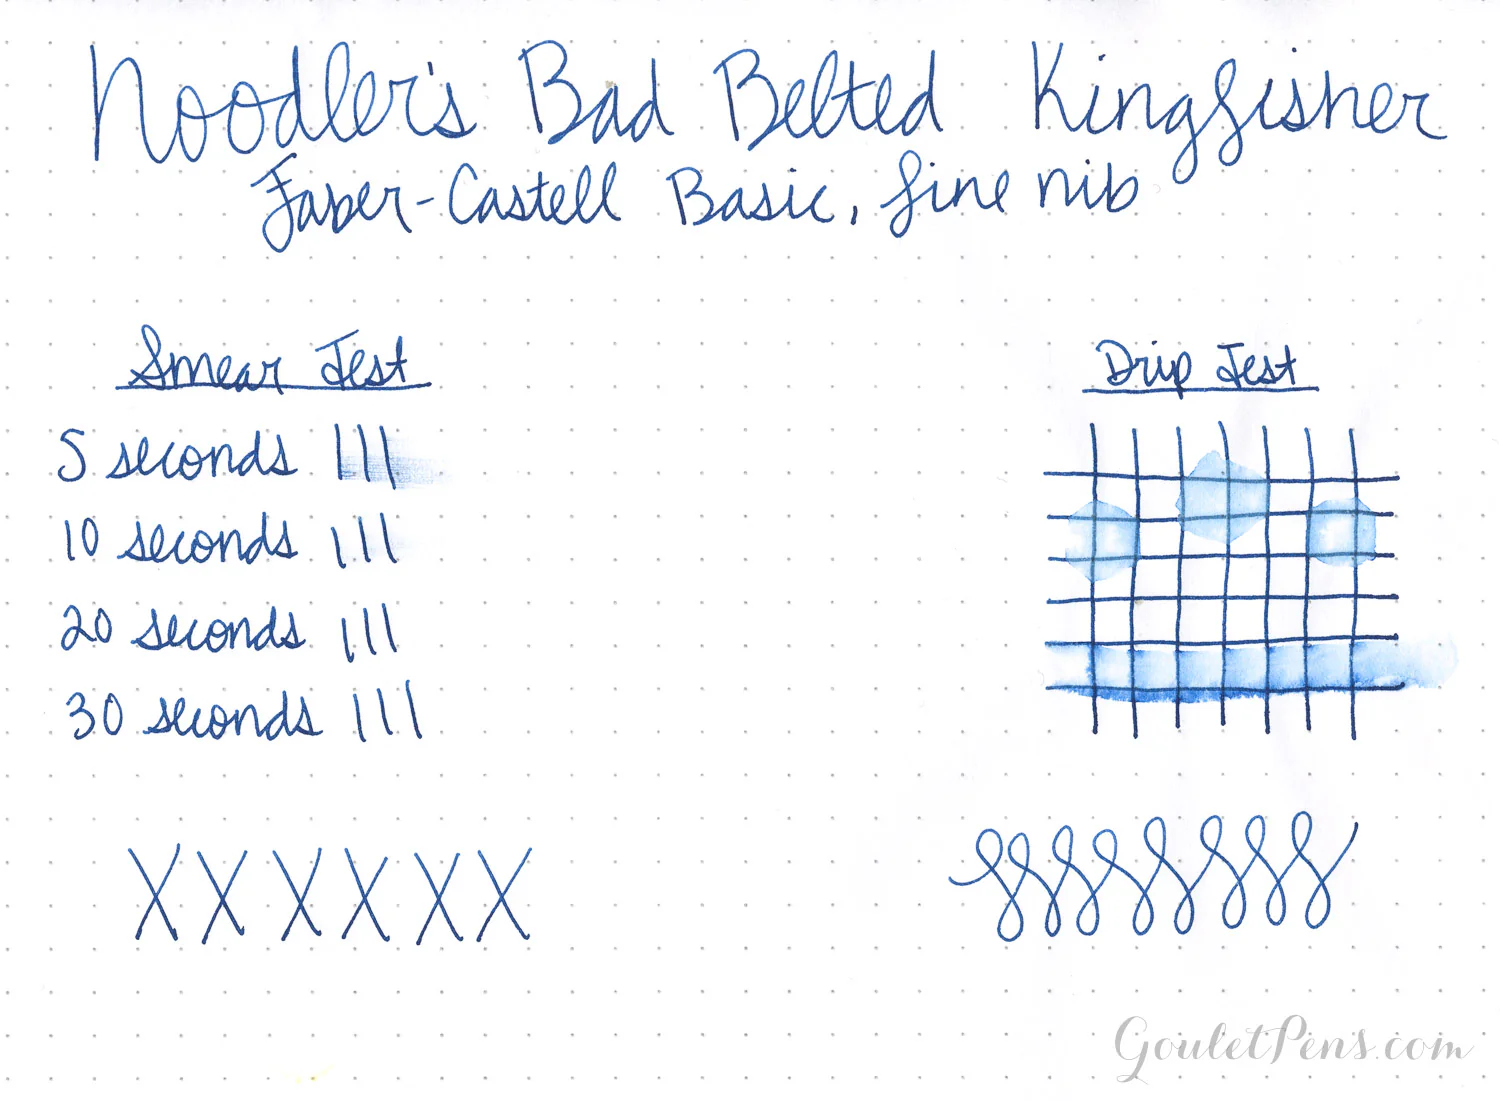 Noodler's Bad Belted Kingfisher
Faber-Castell Basic, fine nib
Smear Test
5 seconds |||
10 seconds |||
20 seconds |||
30 seconds |||
Drip Test
X X X X X X
GouletPens.com